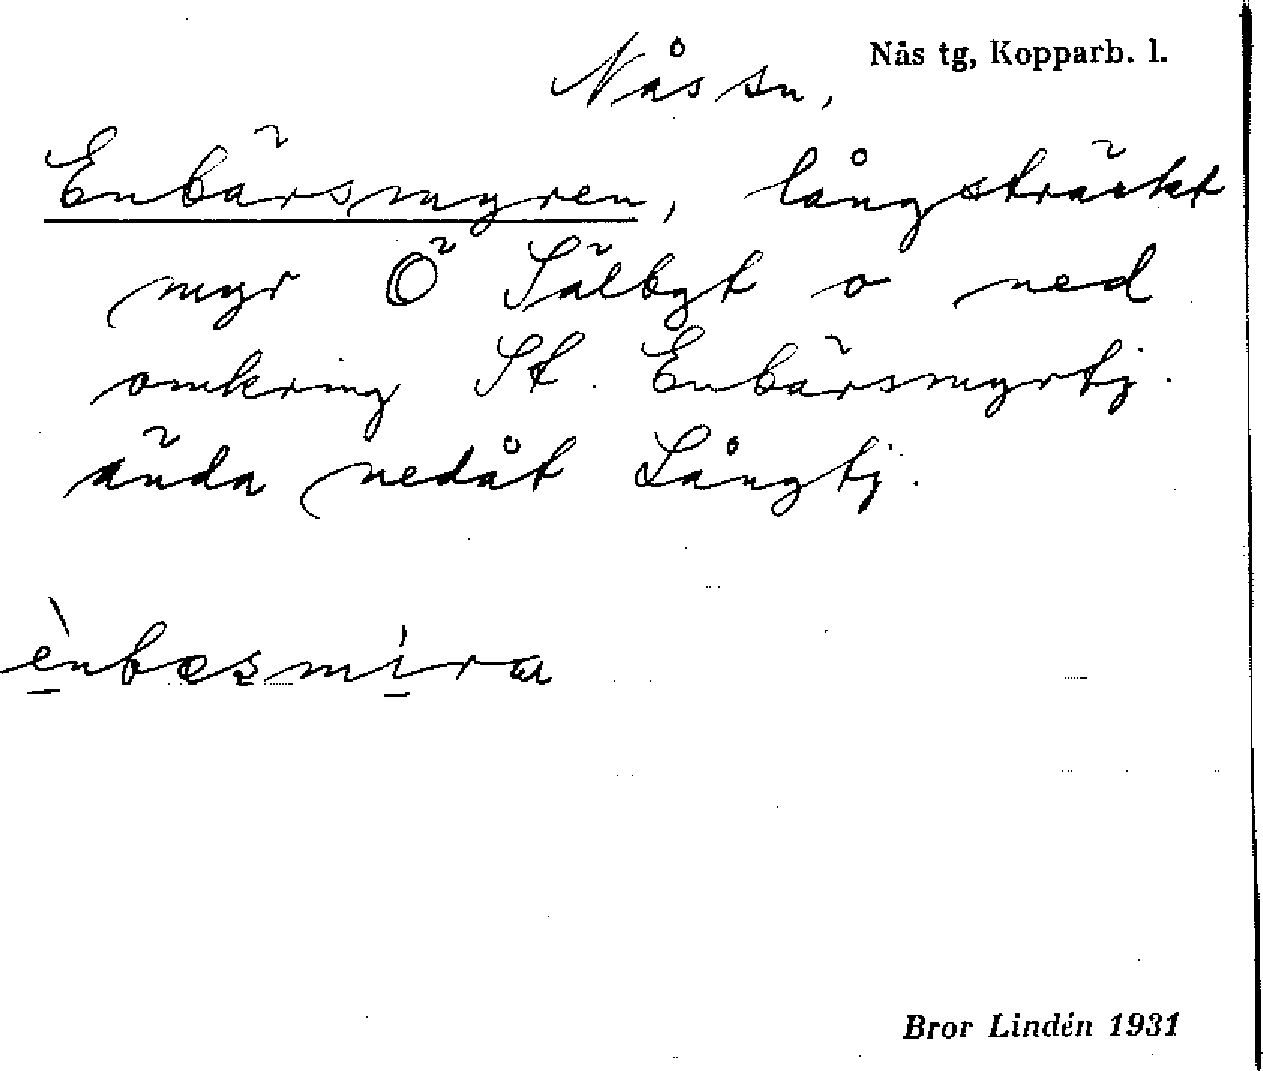 Nås tg, Kopparb. l.
Nås sn,
Enbärsmyren, långsträckt
myr Ö Sälbgt o ned
omkring St. Enbärsmyrtj.
ända nedåt Långtj.
ènbæsmíra
Bror Lindén 1931